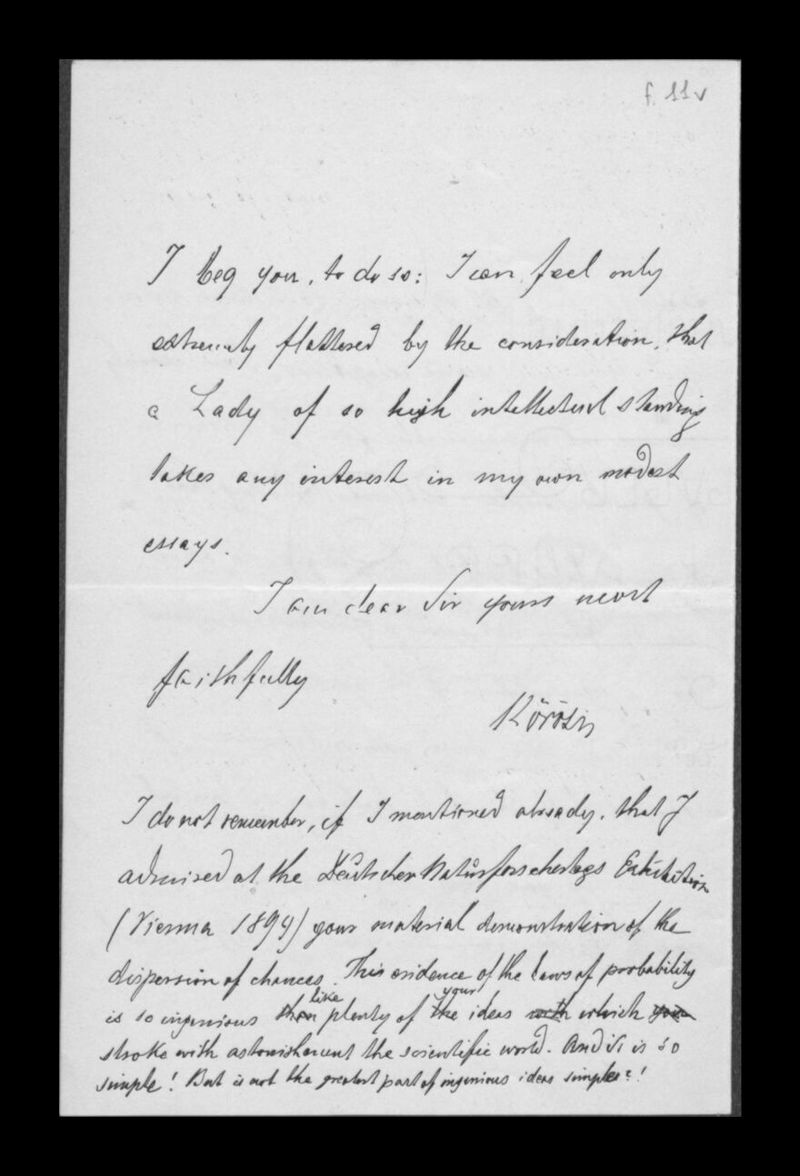 f. 11v
I beg you, to do so: I can feel only
extremely flattered by the consideration, that
a Lady of so high intellectual standing
takes any interest in my own modest
essays.
I am dear Sir yours most
faithfully
Körösi
I do not remember, if I mentioned already, that I
admired at the Deutscher Naturforschertags Exhibition
(Vienna 1894) your material demonstration of the
dispersion of chances. This evidence of the laws of probability
is so ingenious then like plenty of the your ideas with which you
stroke with astonishement the scientific world. And is is so
simple! But is not the greatest part of ingenious ideas simple?!